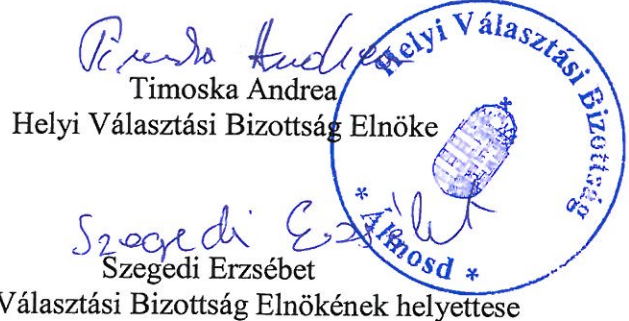 Timoska Andrea
Timoska Andrea
Helyi Választási Bizottság Elnöke
Helyi Választási Bizottság
* Álmosd *
Szegedi Erzsébet
Szegedi Erzsébet
Választási Bizottság Elnökének helyettese